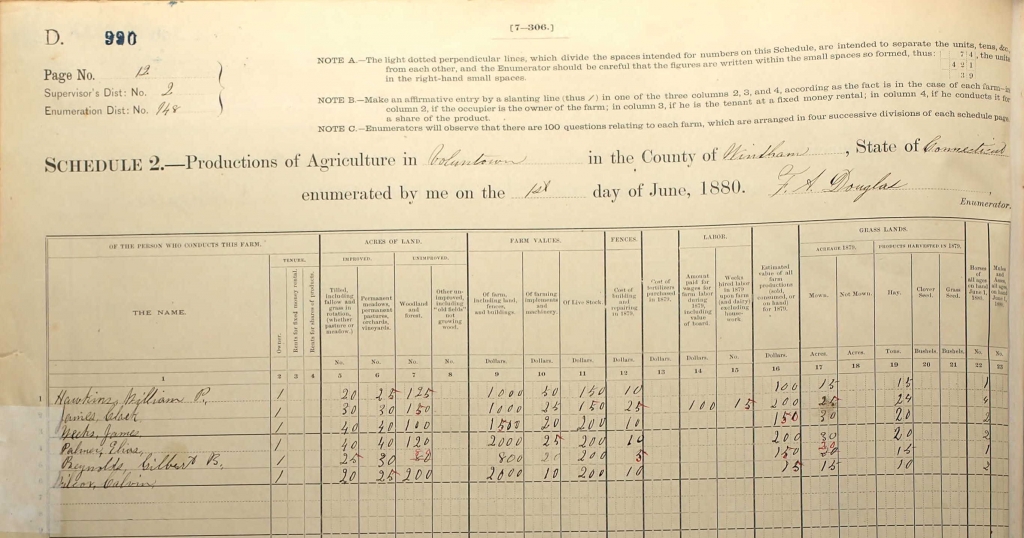 [7—306.]
D. 990
Page No. 12
Supervisor's Dist: No. 2
Enumeration Dist: No. 148
NOTE A.—The light dotted perpendicular lines, which divide the spaces intended for numbers on this Schedule, are intended to separate the units, tens, &c.,
from each other, and the Enumerator should be careful that the figures are written within the small spaces so formed, thus: 7 4, the units
in the right-hand small spaces. 4 2 1
3 9
NOTE B.—Make an affirmative entry by a slanting line (thus /) in one of the three columns 2, 3, and 4, according as the fact is in the case of each farm—in
column 2, if the occupier is the owner of the farm; in column 3, if he is the tenant at a fixed money rental; in column 4, if he conducts it for
a share of the product.
NOTE C.—Enumerators will observe that there are 100 questions relating to each farm, which are arranged in four successive divisions of each schedule page.
SCHEDULE 2.—Productions of Agriculture in Voluntown in the County of Windham, State of Connecticut
enumerated by me on the 1st day of June, 1880. F. A. Douglas
Enumerator.
OF THE PERSON WHO CONDUCTS THIS FARM. ACRES OF LAND. FARM VALUES. FENCES. LABOR. GRASS LANDS.
TENURE. IMPROVED. UNIMPROVED. ACREAGE 1879. PRODUCTS HARVESTED IN 1879.
THE NAME.
Owner.
Rents for fixed money rental.
Rents for shares of products.
Tilled, including fallow and grass in rotation, (whether pasture or meadow.)
Permanent meadows, permanent pastures, orchards, vineyards.
Woodland and forest.
Other unimproved, including "old fields" not growing wood.
Of farm, including land, fences, and buildings.
Of farming implements and machinery.
Of Live Stock.
Cost of building and repairing in 1879.
Cost of fertilizers purchased in 1879.
Amount paid for wages for farm labor during 1879, including value of board.
Weeks hired labor in 1879 upon farm (and dairy) excluding housework.
Estimated value of all farm productions (sold, consumed, or on hand) for 1879.
Mown. Not Mown. Hay. Clover Seed. Grass Seed.
Horses of all ages on hand June 1, 1880.
Mules and Asses, all ages, on hand June 1,
No. No. No. No. Dollars. Dollars. Dollars. Dollars. Dollars. Dollars. No. Dollars. Acres. Acres. Tons. Bushels. Bushels. No. No.
1 2 3 4 5 6 7 8 9 10 11 12 13 14 15 16 17 18 19 20 21 22 23
1 Hawkins, William P. / 20 25 125 1000 50 150 10 100 15 15 1
James, Clark / 30 30 150 1000 25 150 25 100 15 200 25 24 4
Weeks, James / 40 40 100 1500 20 200 10 150 30 20 2
Palmer, Elias / 40 40 120 2000 25 200 10 200 30 20 2
Reynolds, Gilbert B. / 25 30 800 20 200 5 150 30 15 1
Wilcox, Calvin / 20 25 200 2000 10 200 10 15 15 10 2